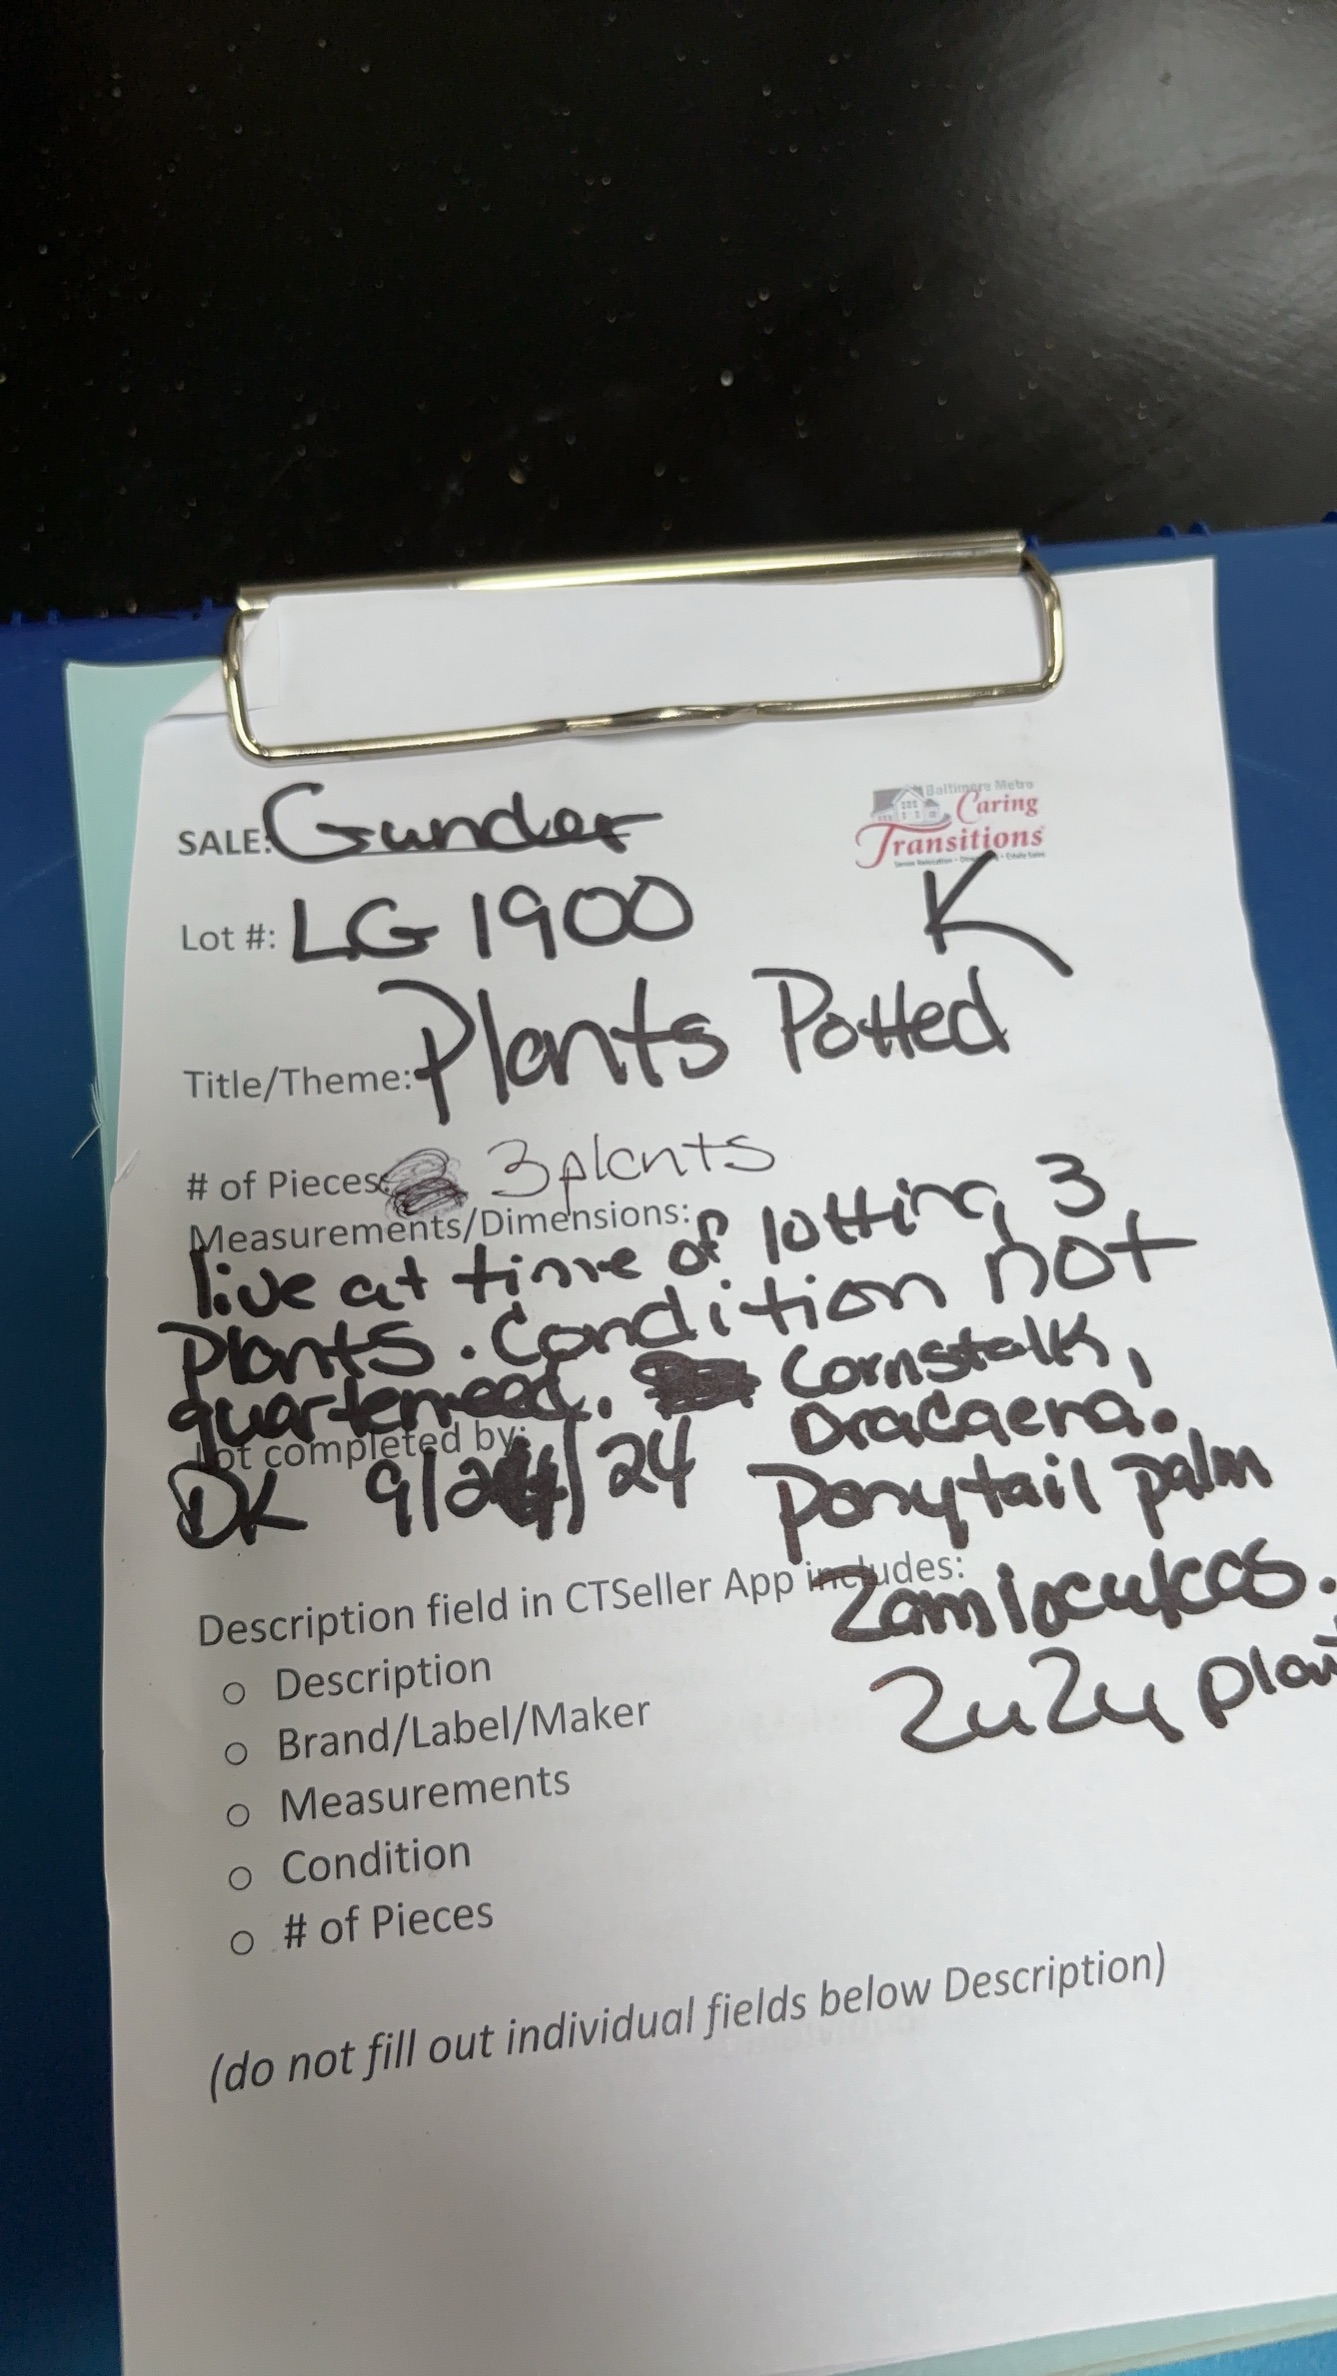 SALE: Gunder
Baltimore Metro
Caring
Transitions
Lot #: LG 1900
K
Title/Theme: Plants Potted
# of Pieces: 3 plants
Measurements/Dimensions:
live at time of lotting 3
Plants. Condition not
Cornstalk,
Dracaena.
Lot completed by:
DK 9/24/24
Ponytail palm
Description field in CTSeller App includes:
Zamioculcas.
ZuZu plant
○ Description
○ Brand/Label/Maker
○ Measurements
○ Condition
○ # of Pieces
(do not fill out individual fields below Description)